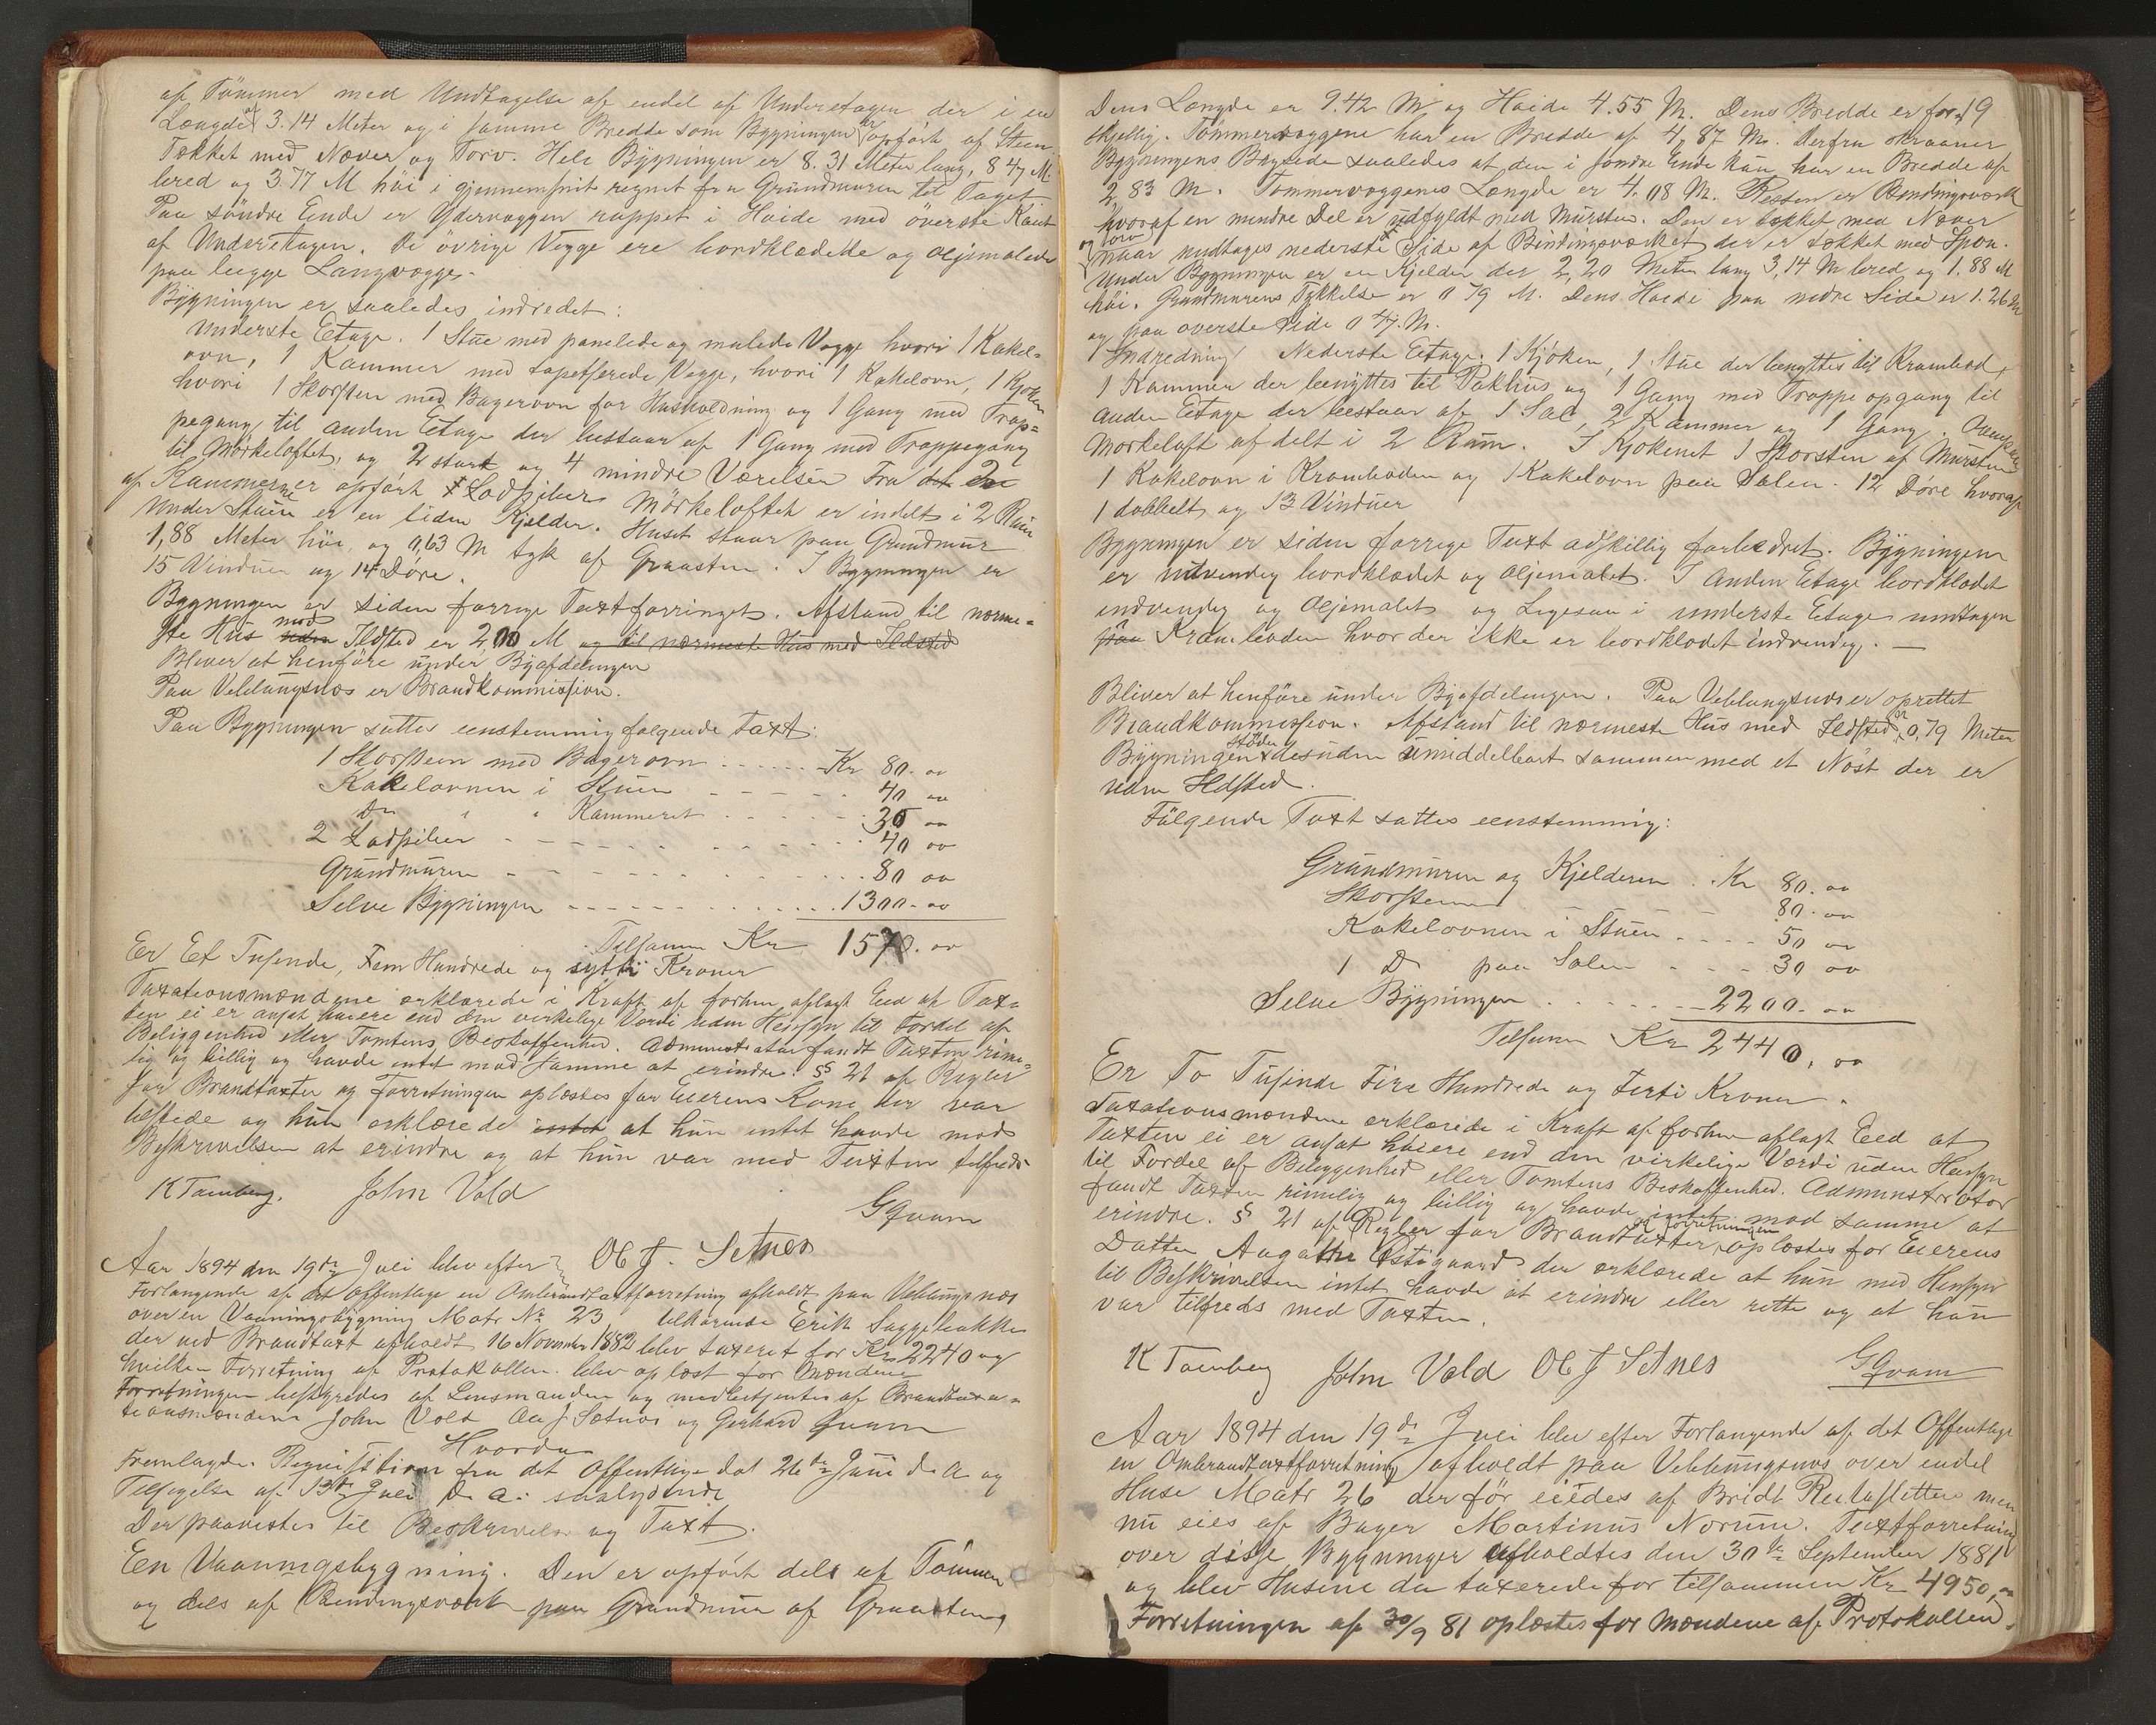 af Tömmer med Undtagelse af endel af Underetagen der i en
Længde af 3.14 Meter og i samme Bredde som Bygningen er opfört af Steen
Tækket med Næver og Torv. Hele Bygningen er 8.31 Meter lang, 8 47 M
bred og 3.77 M höi i gjennemsnit regnet fra Grundmuren til Taget
Paa söndre Ende er Ydervæggen rappet i Höide med överste Kant
af Underetagen. De övrige Vægge ere bordklædte og oljemalede
paa begge Langvægge.
Bygningen er saaledes indredet:
Underste Etage. 1 Stue med panelede og malede Vægge hvori 1 Kakel=
ovn, 1 Kammer med tapetserede Vægge, hvori 1 Kakelovn, 1 Kjøken
hvori 1 Skorsten med Bagerovn for Husholdning og 1 Gang med Trap=
pegang til anden Etage der bestaar af 1 Gang med Trappegang
til Mörkeloftet, og 2 störe og 4 mindre Værelser Fra det 2de
af Kammerner opfört Ladpiber Mörkeloftet er indelt i 2 Rum
Under Stuen er en liden Kjelder. Huset staar paa Grundmur
1,88 Meter höi, og 0,63 M tyk af Graasten. I Bygningen er
15 Vinduer og 14 Döre.
Bygningen er siden forrige Taxt forringet. Afstand til nærme=
ste Hus uden med Ildsted er 2,00 M og til nærmeste Hus med Ildsted
Bliver at henföre under Byafdelingen
Paa Veblungsnæs er Brandkommission.
Paa Bygningen sattes eenstemmig følgende Taxt:
1 Skorsteen med Bagerovn ...... Kr 80. 00
Kakelovnen i Stuen - - - - - 40 00
Do " " Kammeret - - - - 30 00
2 Ladpiber - - - - - - - 40 00
Grundmuren - - - - - - - 80 00
Selve Bygningen - - - - - - 1300. 00
Tilsamm Kr 1570. 00
Er Et Tusende, Fem Hundrede og sytti Kroner
Taxationsmændene erklærede i Kraft af forhen aflagt Eed at Tax=
ten ei er ansat høiere end den virkelige Værdi uden Hensyn til Fordel af
Beliggenhed eller Tomtens Beskaffenhed. Administrator fandt Taxten rime=
lig og billig og havde intet mod samme at erindre. § 21 af Regler
for Brandtaxter og Forretningen oplæstes for Eierens Kone der var
tilstede og hun erklærede intet at hun intet havde mod
Beskrivelsen at erindre og at hun var med Taxten tilfreds.
K Tomberg. John Vold GQvam
Ole J. Setnes
Aar 1894 den 19de Juli blev efter
Forlangende af det Offentlige en Ombrandtaxtforretning afholdt paa Veblungsnæs
over en Vaaningsbygning Matr No 23 tilhörende Erik Saggebakke
der ved Brandtaxt afholdt 16 November 1882 blev taxeret for Kr 2240 og
hvilken Forretning af Protokollen blev oplæst for Mændene
Forretningen bestyredes af Lensmanden og medbetjentes af Brandtaxa=
tionsmændene John Vold Ole J Sætnes og Gerhard Qvam
Hvorda
Fremlagdes Requisition fra det Offentlige dat 26de Juni d. A og
Tilsigelse af 13de Juli d. a. saalydende
Der paavistes til Beskrivelse og Taxt.
En Vaaningsbygning. Den er opfört dels af Tömmer
og dels af Bindingsværk paa Grundmur af Graasten
19
Dens Længde er 9.42 M og Höide 4.55 M. Dens Bredde er for=
skjellig. Tömmervæggene har en Bredde af 4,87 M. Derfra skraaner
Bygningens Bagside saaledes at den i söndre Ende kun har en Bredde af
2,83 M. Tömmervæggenes Længde er 4.08 M. Resten er Bindingsværk
hvoraf en mindre Del er udfyldt med Mursten. Den er tækket med Næver
og Torv naar undtages nederste Side af Bindingsværket der er tækket med Spon.
Under Bygningen er en Kjelder der 2,20 Meter lang 3,14 M bred og 1.88 M
höi. Grundmurens Tykkelse er 0 79 M. Dens Höide paa nedre Side er 1.26 M
og paa överste Side 0 47 M.
Indredning Nederste Etage. 1 Kjöken, 1 Stue der benyttes til Krambod,
1 Kammer der benyttes til Pakhus og 1 Gang med Trappe opgang til
anden Etage der bestaar af 1 Sal, 2 Kammer og 1 Gang.
Mörkeloft afdelt i 2 Rum. I Kjökenet 1 Skorsten af Mursten
1 Kakelovn i Kramboden og 1 Kakelovn paa Salen. 12 Döre hvoraf
1 dobbelt og 13 Vinduer
Bygningen er siden forrige Taxt adskillig forbedret. Bygningen
er udvendig bordklædet og oljemalet. I Anden Etage bordklædt
indvendig og Oljemalet og Ligesaa i underste Etage undtagen
paa Kramboden hvor der ikke er bordklædt indvendig. —
Bliver at henföre under Byafdelingen. Paa Veblungsnæs er oprettet
Brandkommission. Afstand til nærmeste Hus med Ildsted er 0,79 Meter
Bygningen stöder desuden umiddelbart sammen med et Nöst der er
uden Ildsted.
Fölgende Taxt sattes eenstemmig:
Grundmuren og Kjelderen . . Kr 80. 00
Skorstenen - - 80. 00
Kakelovnen i Stuen - - - - 50 00
1 Do paa Salen - - - 30 00
Selve Bygningen - - - - 2200. 00
Tilsamm Kr 2440. 00
Er To Tusinde Fire Hundrede og Firti Kroner.
Taxationsmændene erklærede i Kraft af forhen aflagt Eed at
Taxten ei er ansat høiere end den virkelige Værdi uden Hensyn
til Fordel af Beliggenhed eller Tomtens Beskaffenhed. Administrator
fandt Taxten rimelig og billig og havde intet mod samme at
erindre. § 21 af Regler for Brandtaxter og Forretningen oplæstes for Eierens
Datter Augathe Östigaard der erklærede at hun med Hensyn
til Beskrivelsen intet havde at erindre eller rette og at hun
var tilfreds med Taxten.
K Tomberg John Vold Ole J Setnes GQvam
Aar 1894 den 19de Juli blev efter Forlangende af det Offentlige
en Ombrandtaxtforretning afholdt paa Veblungsnæs over endel
Huse Matr 26 der för eiedes af Bridt men
nu eies af Bager Martinus Norum. Taxtforretning
over disse Bygninger afholdtes den 30te September 1881
og blev Husene da taxerede for tilsammen Kr 4950,00
Forretningen af 30/9 81 oplæstes for Mændene af Protokollen.